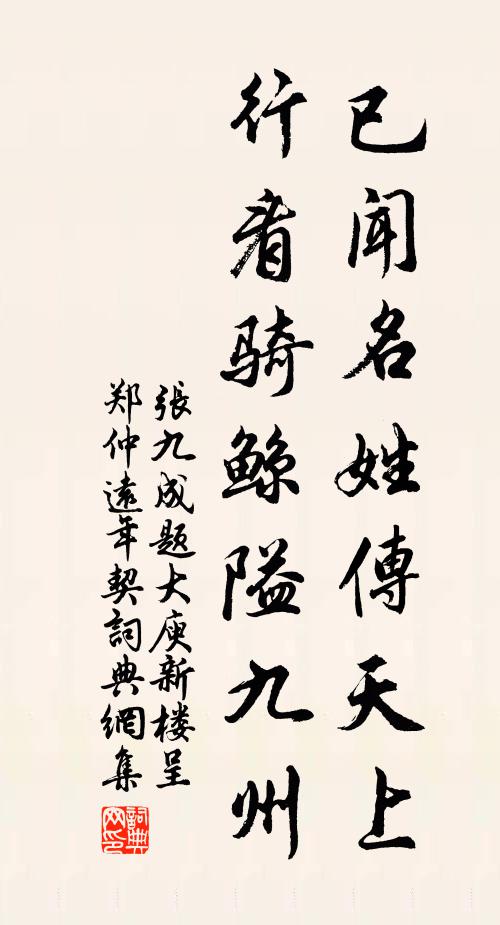 已闻名姓傳天上
行看骑鲸隘九州
張九成题大庾新楼呈
郑仲遠年契詞典網集
詞典网印